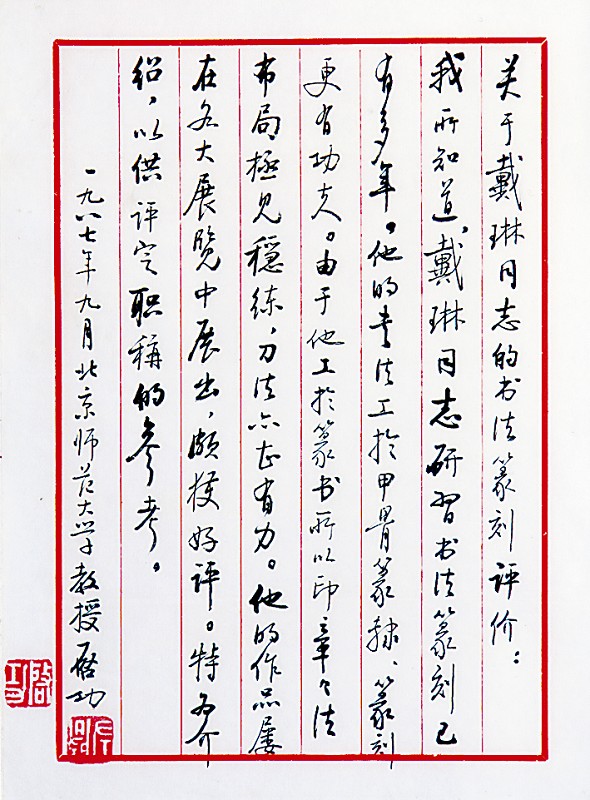 关于戴琳同志的书法篆刻评价：
我所知道，戴琳同志研习书法篆刻已
有多年。他的书法工於甲骨篆隶、篆刻
更有功夫。由于他工於篆书所以印章々法
布局極见穩练，刀法亦甚有力。他的作品屡
在各大展覧中展出，颇獲好评。特为介
绍，以供评定职稱的参考。
一九八七年九月北京师范大学教授启功